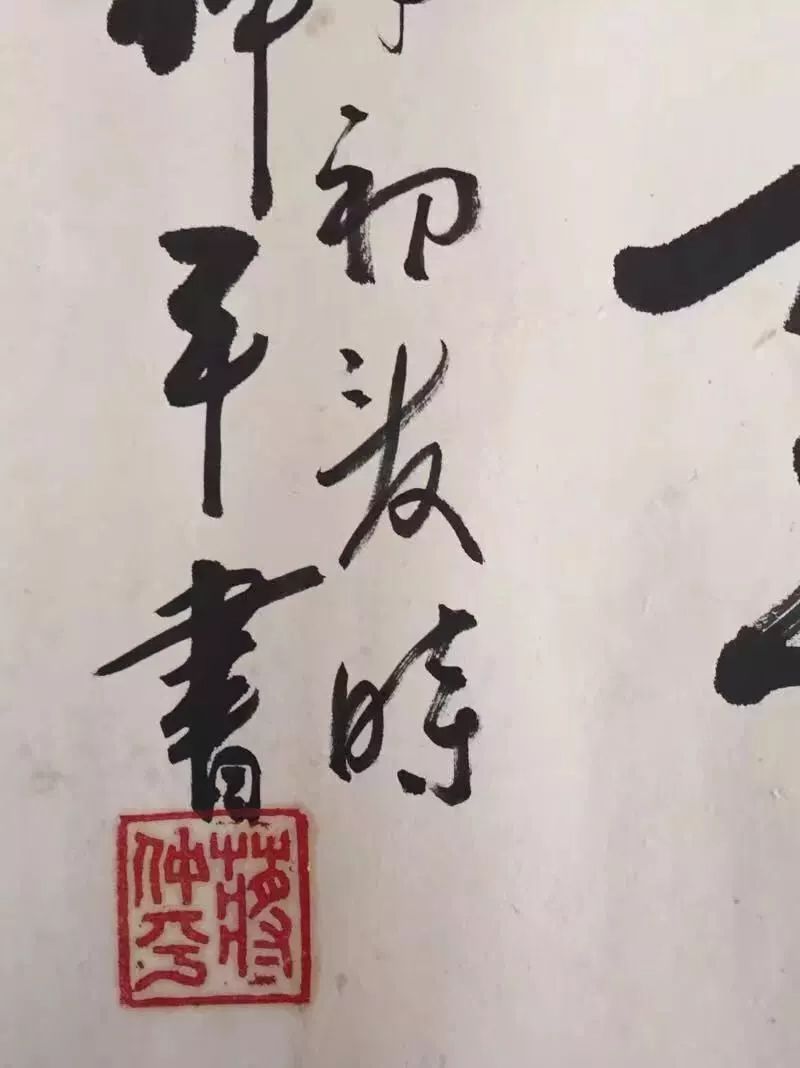 初发時
仲平書
蔣仲平